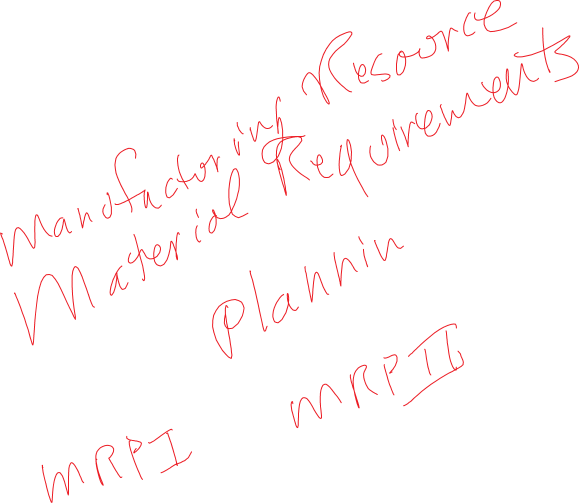 Manufacturing Resource
Material Requirements
Plannin
MRP I
MRP II